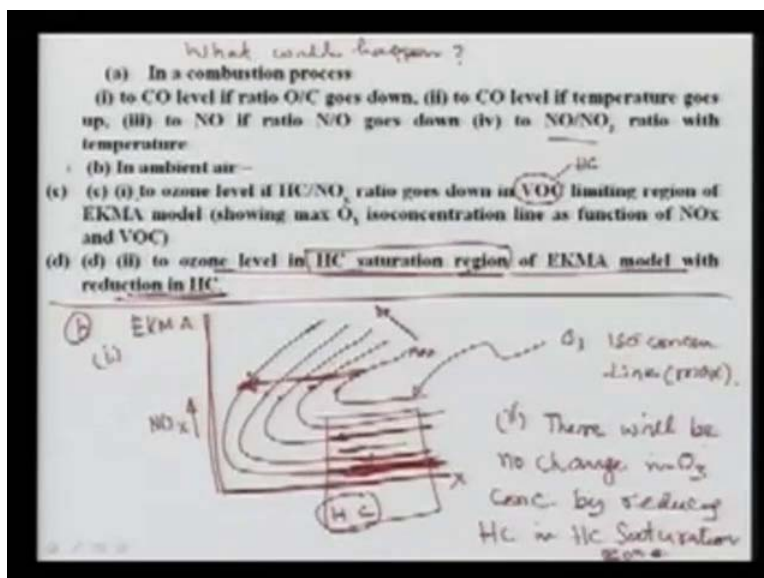 What will happen?
(a) In a combustion process
(i) to CO level if ratio O/C goes down, (ii) to CO level if temperature goes
up, (iii) to NO if ratio N/O goes down (iv) to NO/NO₂ ratio with
temperature
HC
(b) In ambient air –
(c) (c) (i) to ozone level if HC/NOx ratio goes down in VOC limiting region of
EKMA model (showing max O₃ isoconcentration line as function of NOx
and VOC)
(d) (d) (ii) to ozone level in HC saturation region of EKMA model with
reduction in HC
(b) EKMA
(i)
O₃ iso concen
Line (max).
NOx
There will be
no change in O₃
conc. by reducing
HC in HC Saturation
zone
HC